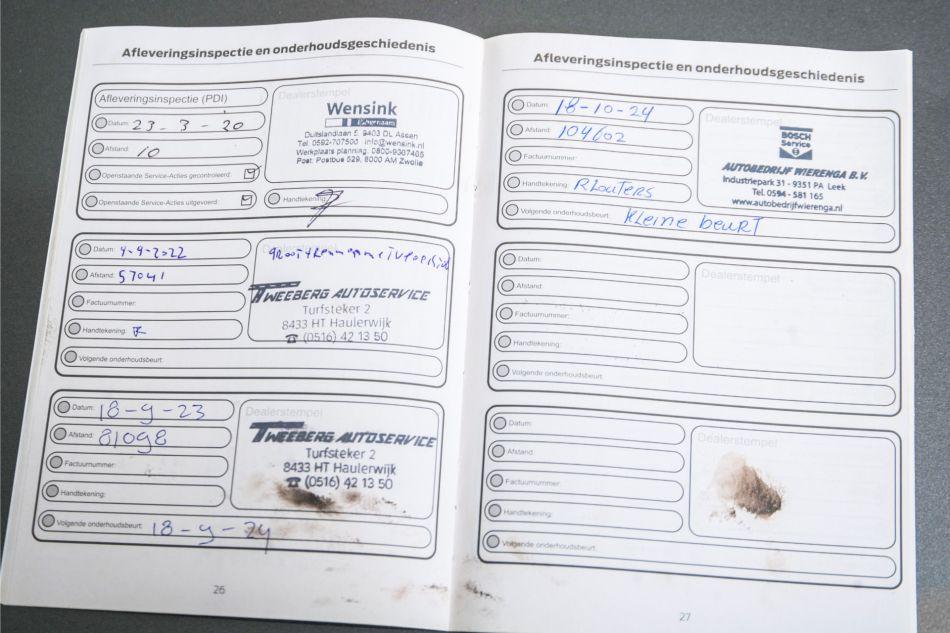 Afleveringsinspectie en onderhoudsgeschiedenis
Afleveringsinspectie (PDI)
Datum: 23-3-20
Afstand: 10
Openstaande Service-Acties gecontroleerd:
Openstaande Service-Acties uitgevoerd:
Dealerstempel
Wensink
Duitslandlaan 5, 9403 DL Assen
Tel. 0592-707500 info@wensink.nl
Werkplaats planning: 0800-9367465
Post: Postbus 529, 8000 AM Zwolle
Handtekening:
Datum: 4-4-2022
Afstand: 57041
Factuurnummer:
Handtekening:
Volgende onderhoudsbeurt:
TWEEBERG AUTOSERVICE
Turfsteker 2
8433 HT Haulerwijk
☎ (0516) 42 13 50
Datum: 18-9-23
Afstand: 81098
Factuurnummer:
Handtekening:
Volgende onderhoudsbeurt: 18-9-24
Dealerstempel
TWEEBERG AUTOSERVICE
Turfsteker 2
8433 HT Haulerwijk
☎ (0516) 42 13 50
26
Afleveringsinspectie en onderhoudsgeschiedenis
Datum: 18-10-24
Afstand: 104602
Factuurnummer:
Handtekening: R Louters
Volgende onderhoudsbeurt: Kleine beurt
BOSCH
Service
AUTOBEDRIJF WIERENGA B.V.
Industriepark 31 - 9351 PA Leek
Tel. 0594 - 581 165
www.autobedrijfwierenga.nl
Datum:
Afstand:
Factuurnummer:
Handtekening:
Volgende onderhoudsbeurt:
Dealerstempel
Datum:
Afstand:
Factuurnummer:
Handtekening:
Volgende onderhoudsbeurt:
Dealerstempel
27